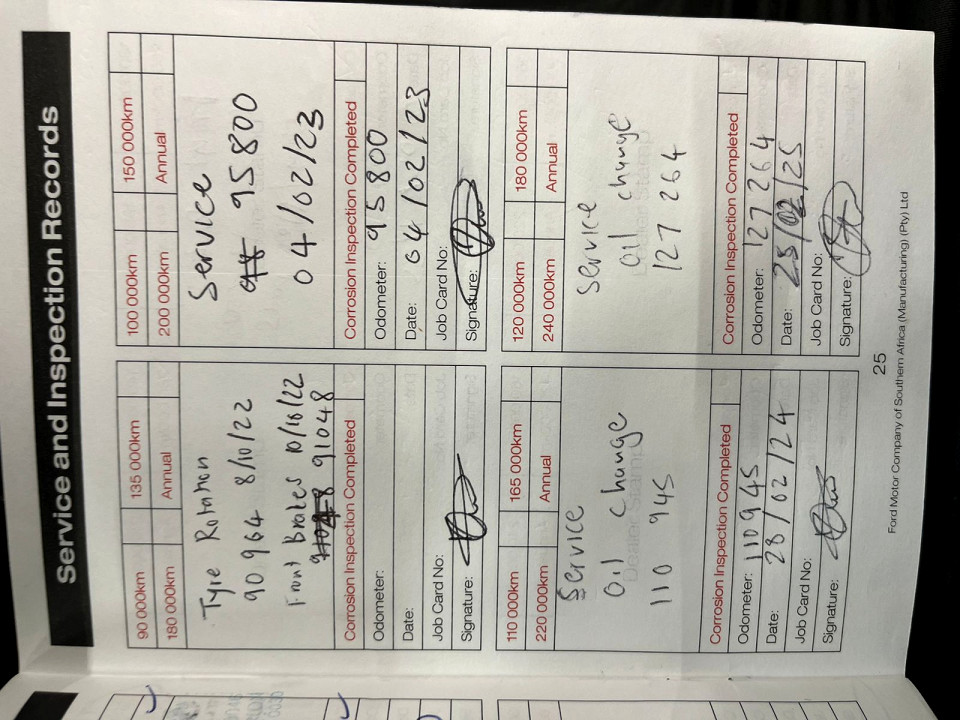 Service and Inspection Records
90 000km 135 000km
180 000km Annual
Tyre Rotation
90 964 8/10/22
Front Brakes 10/10/22
91048
Corrosion Inspection Completed
Odometer:
Date:
Job Card No:
Signature:
100 000km 150 000km
200 000km Annual
Service
95 800
04/02/23
Corrosion Inspection Completed
Odometer: 95 800
Date: 04/02/23
Job Card No:
Signature:
110 000km 165 000km
220 000km Annual
Service
Oil Change
110 945
Corrosion Inspection Completed
Odometer: 110945
Date: 28/02/24
Job Card No:
Signature:
120 000km 180 000km
240 000km Annual
Service
Oil change
127 264
Corrosion Inspection Completed
Odometer: 127264
Date: 25/02/25
Job Card No:
Signature:
25
Ford Motor Company of Southern Africa (Manufacturing) (Pty) Ltd